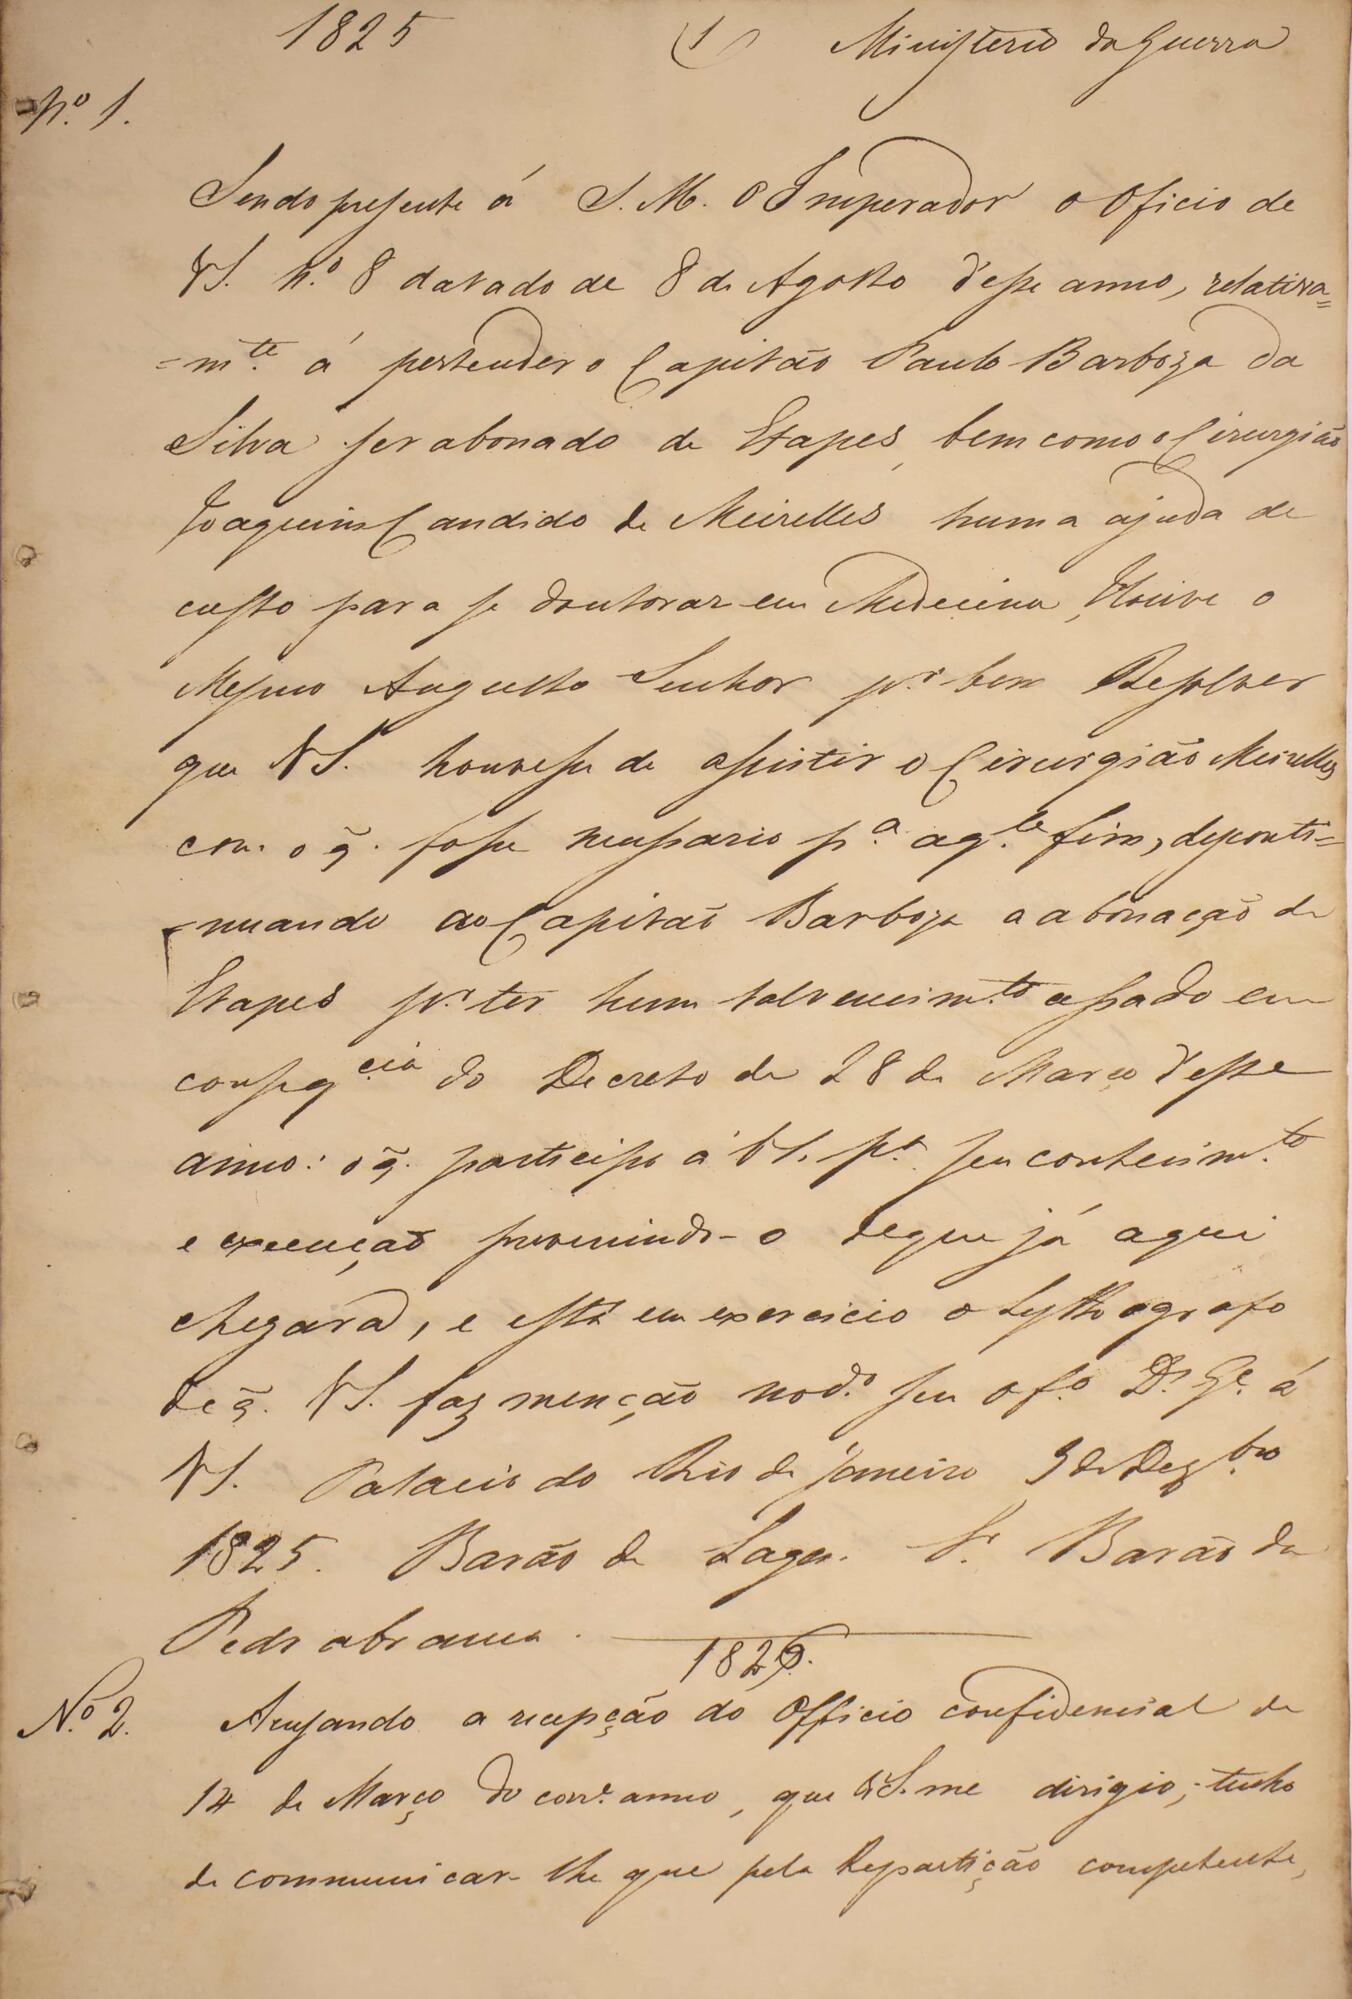 1825 1 Ministerio da Guerra
Nº. 1.
Sendo presente á S. M. o Imperador o Oficio de
VS. Nº 8 datado de 8 de Agosto d'este anno, relativa=
=m.te á pertender o Capitão Paulo Barboza da
Silva ser abonado de Etapes, bem como o Cirurgião
Joaquim Candido de Meirelles huma ajuda de
custo para se doutorar em Medecina, Houve o
Mesmo Augusto Senhor p.r bem Resolver
que VS. houvesse de assistir o Cirurgião Meirelles
com o q̃. fosse necessario p.a aq.le fim, desconti=
=nuando ao Capitão Barboza a abonação de
Etapes p.r ter hum tal vencim.to cessado em
conseq.cia do Decreto de 28 de Março d'este
anno: o q̃. participo á VS. p.a seu conhecim.to
e execução prevenindo-o de que já aqui
chegára, e está em exercicio o Lythographo
de q̃. VS. faz menção no d.o seu of.o D.s G.e á
VS. Palacio do Rio de Janeiro 9 de Dez.bro
1825. Barão de Lages. S.r Barão da
Pedra branca.
1826.
N.o 2. Acusando a recepção do Officio confidencial de
14 de Março do corr.e anno, que VS. me dirigio, tenho
de communicar-lhe que pela Repartição competente,